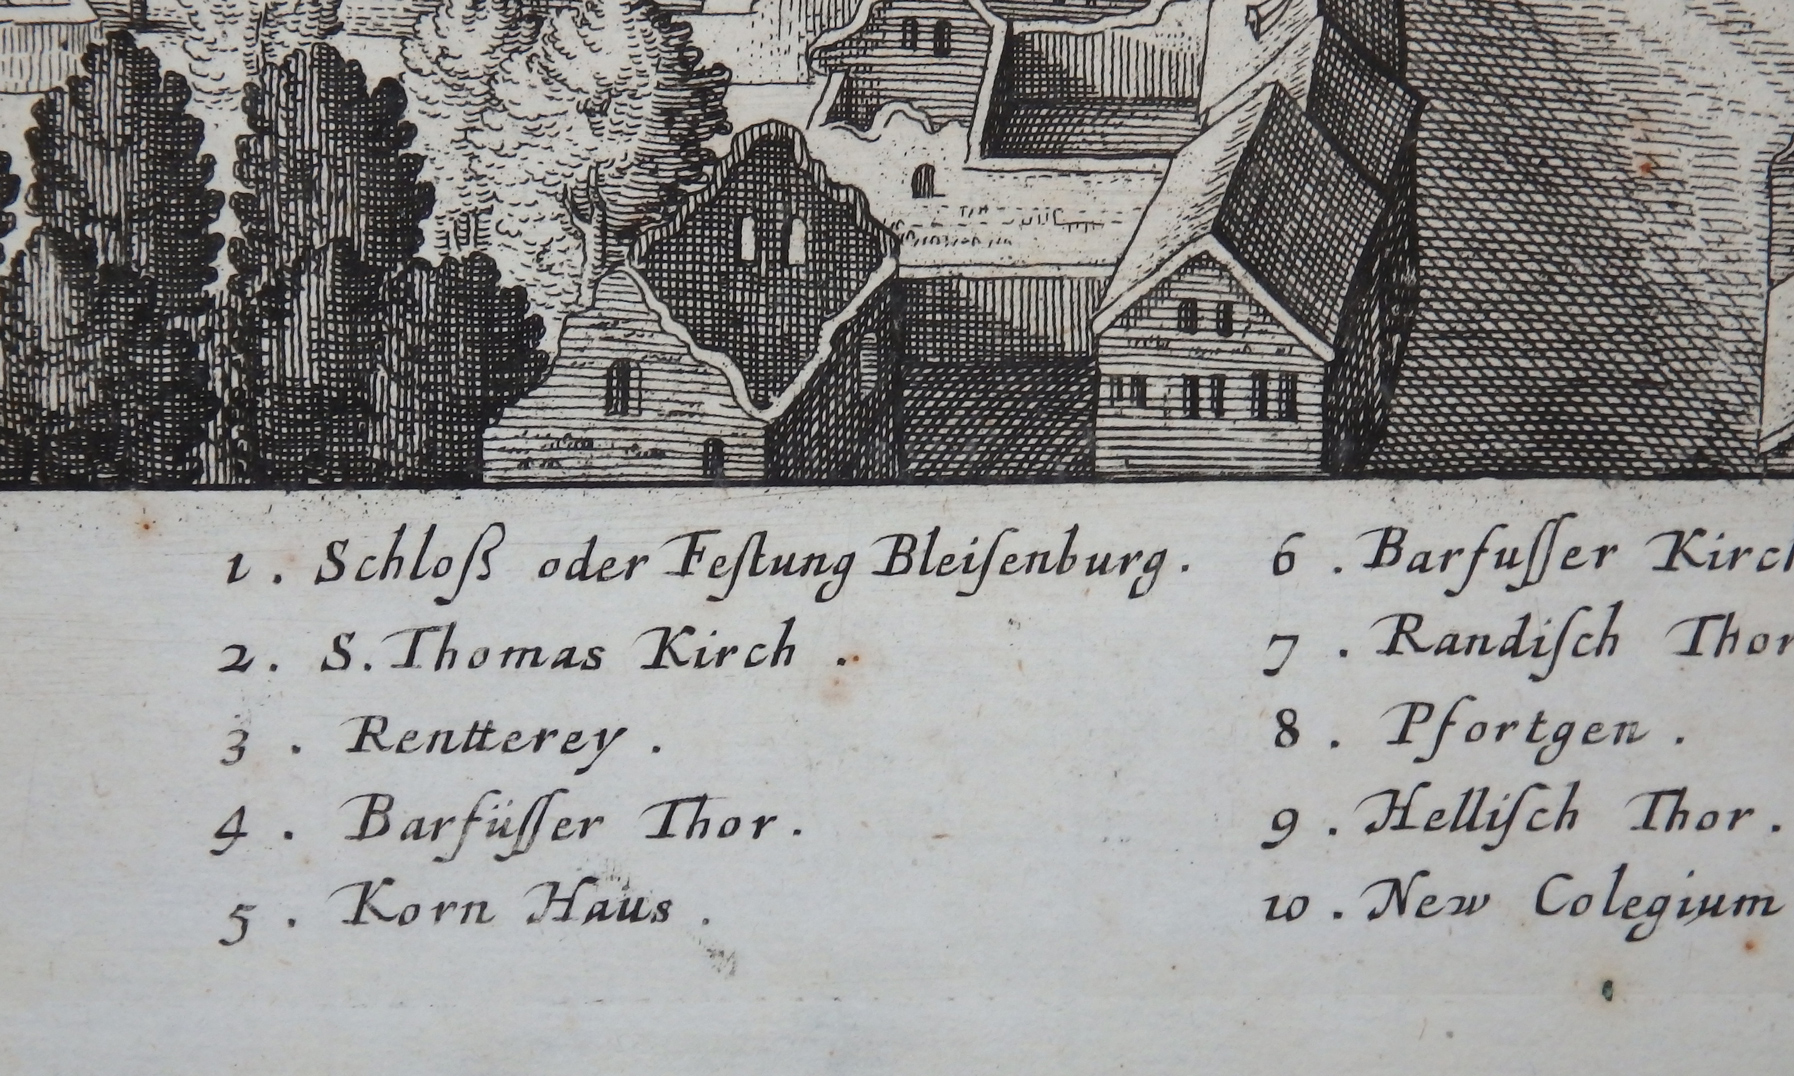 1 . Schloß oder Feſtung Bleiſenburg .
2 . S. Thomas Kirch .
3 . Rentterey .
4 . Barfüſſer Thor .
5 . Korn Haus .
6 . Barfuſſer
7 . Randiſch Thor
8 . Pfortgen .
9 . Helliſch Thor .
10 . New Colegium